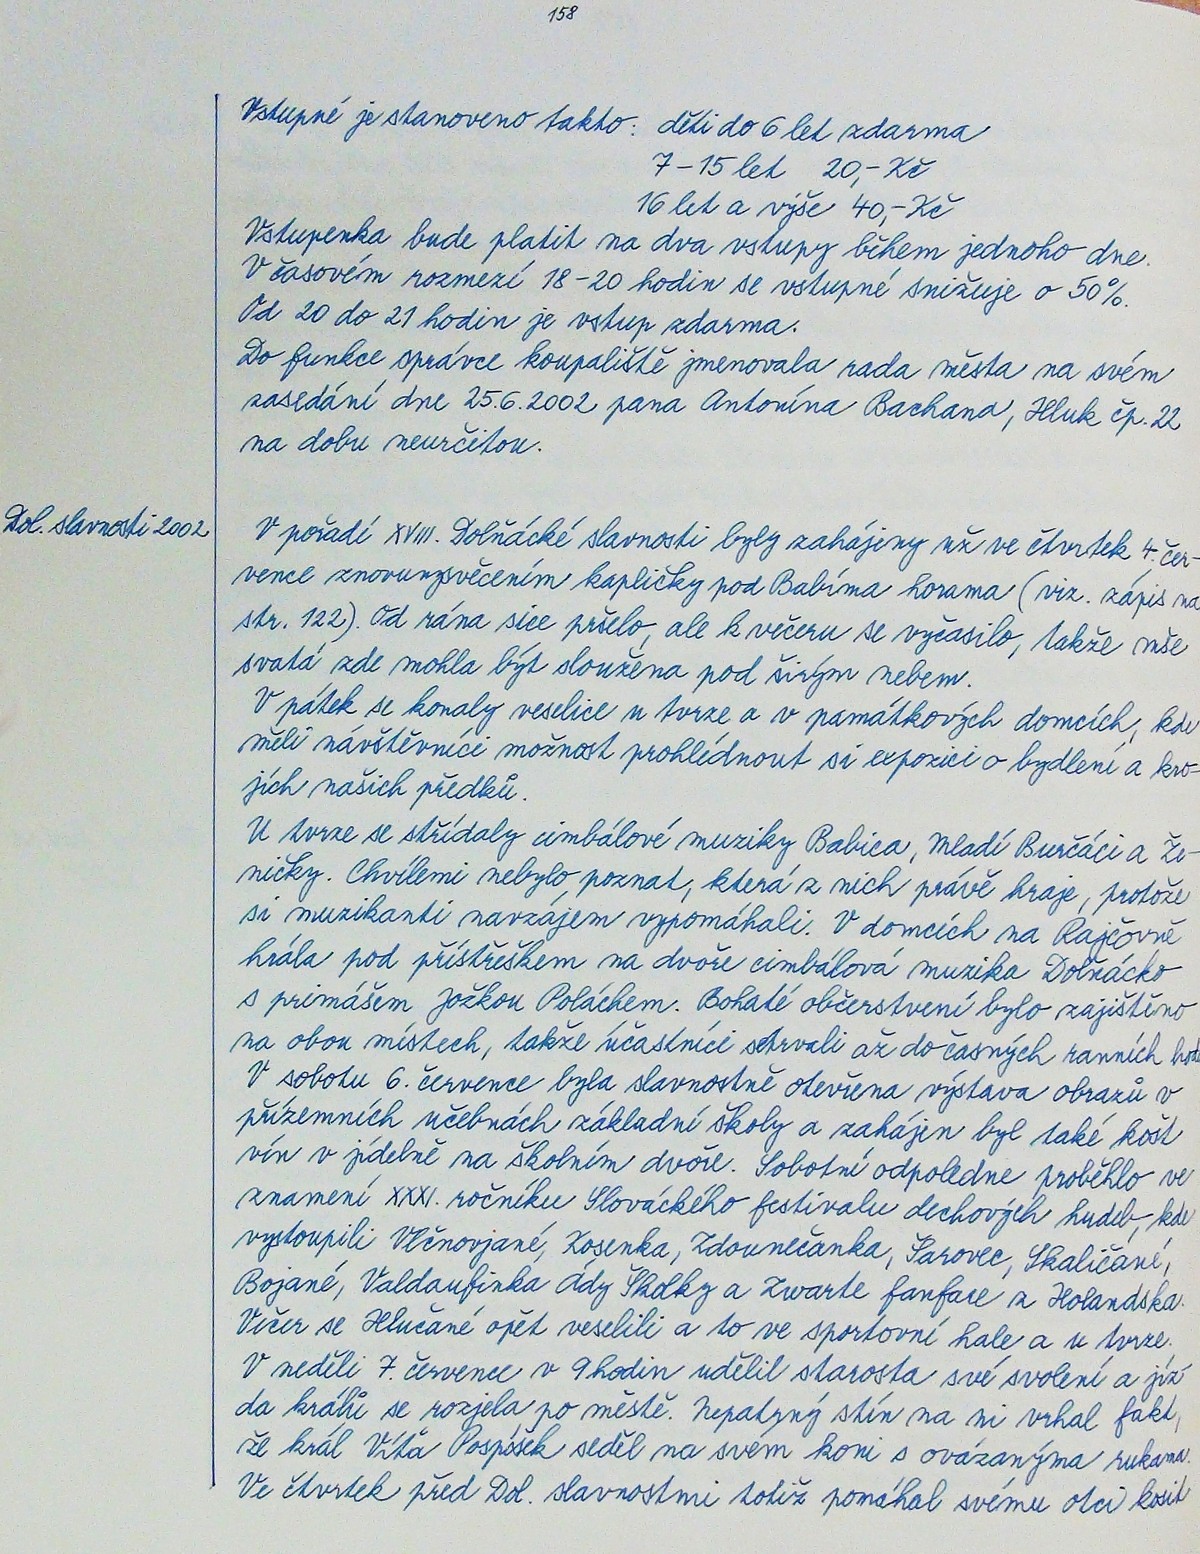 158
Vstupné je stanoveno takto: děti do 6 let zdarma
7-15 let 20,- Kč
16 let a výše 40,- Kč
Vstupenka bude platit na dva vstupy během jednoho dne.
V časovém rozmezí 18-20 hodin se vstupné snižuje o 50%.
Od 20 do 21 hodin je vstup zdarma.
Do funkce správce koupaliště jmenovala rada města na svém
zasedání dne 25.6.2002 pana Antonína Bachana, Hluk čp. 22
na dobu neurčitou.
Dol. slavnosti 2002
V pořadí XVIII. Dolňácké slavnosti byly zahájeny už ve čtvrtek 4. čer-
vence znovuvysvěcením kapličky pod Babíma horama (viz. zápis na
str. 122). Od rána sice pršelo, ale k večeru se vyčasilo, takže mše
svatá zde mohla být sloužena pod širým nebem.
V pátek se konaly veselice u tvrze a v památkových domcích, kde
měli návštěvníci možnost prohlédnout si expozici o bydlení a kro-
jích našich předků.
U tvrze se střídaly cimbálové muziky Babica, Mladí Burčáci a Že-
ničky. Chvílemi nebylo poznat, která z nich právě hraje, protože
si muzikanti navzájem vypomáhali. V domcích na Rajčovně
hrála pod přístřeškem na dvoře cimbálová muzika Dolňácko
s primášem Jožkou Poláchem. Bohaté občerstvení bylo zajištěno
na obou místech, takže účastníci setrvali až do časných ranních hod
V sobotu 6. července byla slavnostně otevřena výstava obrazů v
přízemních učebnách základní školy a zahájen byl také košt
vín v jídelně na školním dvoře. Sobotní odpoledne proběhlo ve
znamení XXXI. ročníku Slováckého festivalu dechových hudeb, kde
vystoupili Vlčnovjané, Kosenka, Zdounečanka, Šarovec, Skaličané,
Bojané, Valdaufinka Ády Školky a Zwarte fanfare z Holandska.
Večer se Hlučané opět veselili a to ve sportovní hale a u tvrze.
V neděli 7. července v 9 hodin udělil starosta své svolení a jíz
da králů se rozjela po městě. Nepatrný stín na ni vrhal fakt,
že král Víťa Pospíšek seděl na svém koni s ovázanýma rukama.
Ve čtvrtek před Dol. slavnostmi totiž pomáhal svému otci kosit